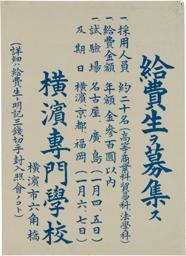 給費生ヲ募集ス
一、採用人員 約二十名(高等商業科、貿易科、法學科)
一、給費金額 年額金參百圓以内
一、試驗場 名古屋、廣島(一月四、五日)
及期日 橫濱、京都、福岡(一月六、七日)
橫濱專門學校
橫濱市六角橋
(詳細ハ給費生ト明記三錢切手封入照會ノコト)